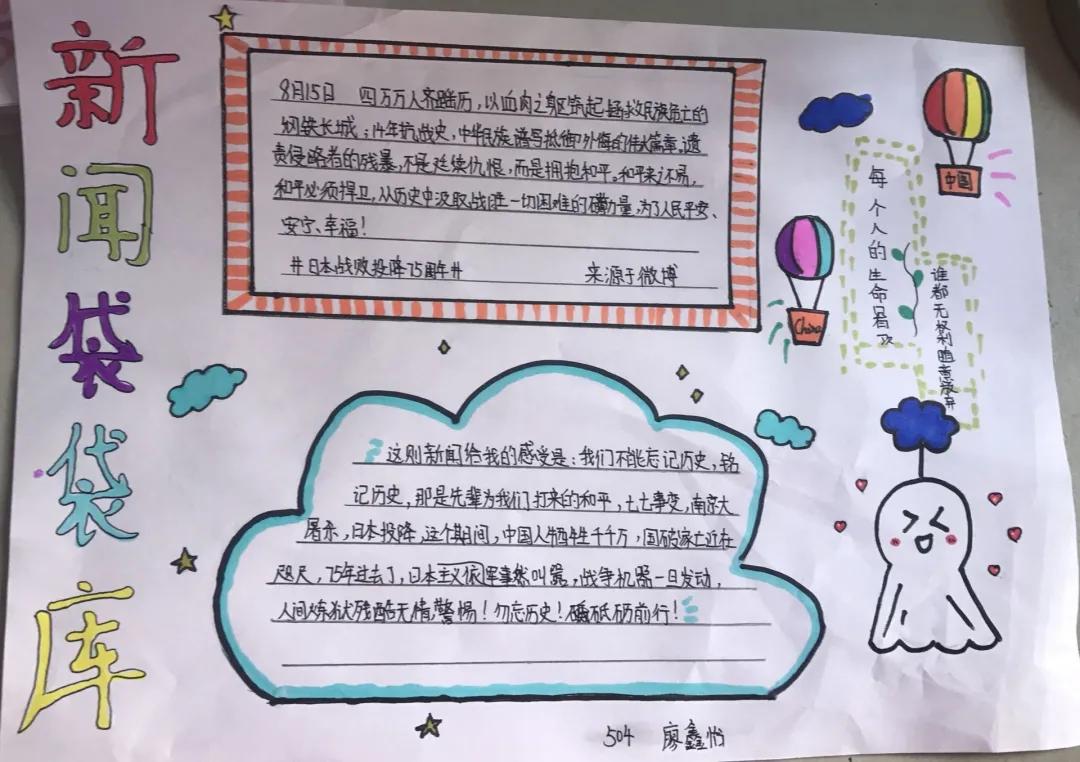 新闻袋袋库
8月15日 四万万人齐蹈厉，以血肉之躯筑起拯救民族危亡的
钢铁长城；14年抗战史，中华民族谱写抵御外侮的伟大篇章，谴
责侵略者的残暴，不是延续仇恨，而是拥抱和平。和平来之不易，
和平必须捍卫，从历史中汲取战胜一切困难的力量，为了人民平安、
安宁、幸福！
#日本战败投降75周年# 来源于微博
中国
China
每个人的生命
谁都无权利随意
这则新闻给我的感受是：我们不能忘记历史，铭
记历史，那是先辈为我们打来的和平，七七事变，南京大
屠杀，日本投降，这个期间，中国人牺牲千千万，国破家亡近在
咫尺，75年过去了，日本主义依 然叫嚣，战争机器一旦发动，
人间炼狱残酷无情，警惕！勿忘历史！砥砺前行！
504 廖鑫怡